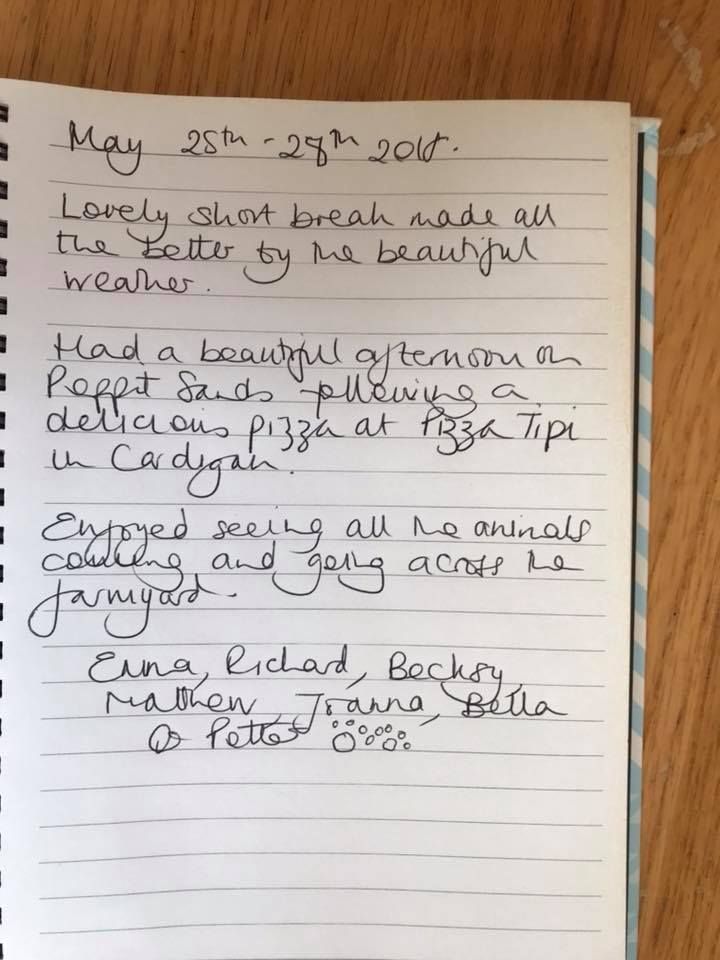 May 25th - 28th 2018.
Lovely short break made all
the better by the beautiful
weather.
Had a beautiful afternoon on
Poppit Sands following a
delicious pizza at Pizza Tipi
in Cardigan.
Enjoyed seeing all the animals
coming and going across the
farmyard.
Emma, Richard, Becksy,
Matthew, Joanna, Bella
&